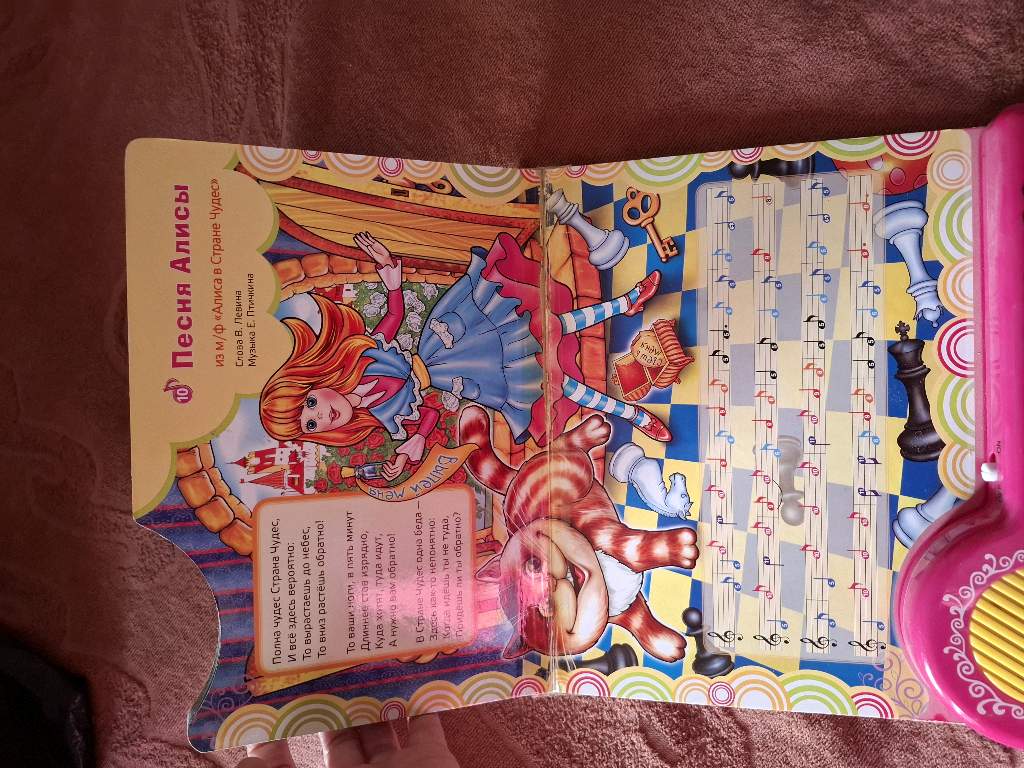 10 Песня Алисы
из м/ф «Алиса в Стране Чудес»
Слова В. Левина
Музыка Е. Птичкина
Полна чудес Страна Чудес,
И всё здесь вероятно:
То вырастаешь до небес,
То вниз растёшь обратно!
То ваши ноги, в пять минут
Длиннее став изрядно,
Куда хотят, туда идут,
А нужно вам обратно!
В Стране Чудес одна беда –
Здесь как-то непонятно:
Когда идёшь ты не туда,
Придёшь ли ты обратно?
Выпей меня